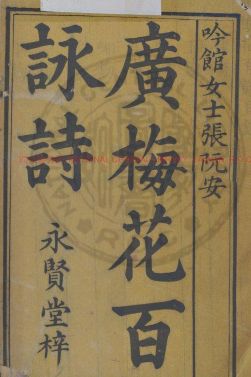 吟館女士張阮安
廣梅花百
詠詩
永賢堂梓